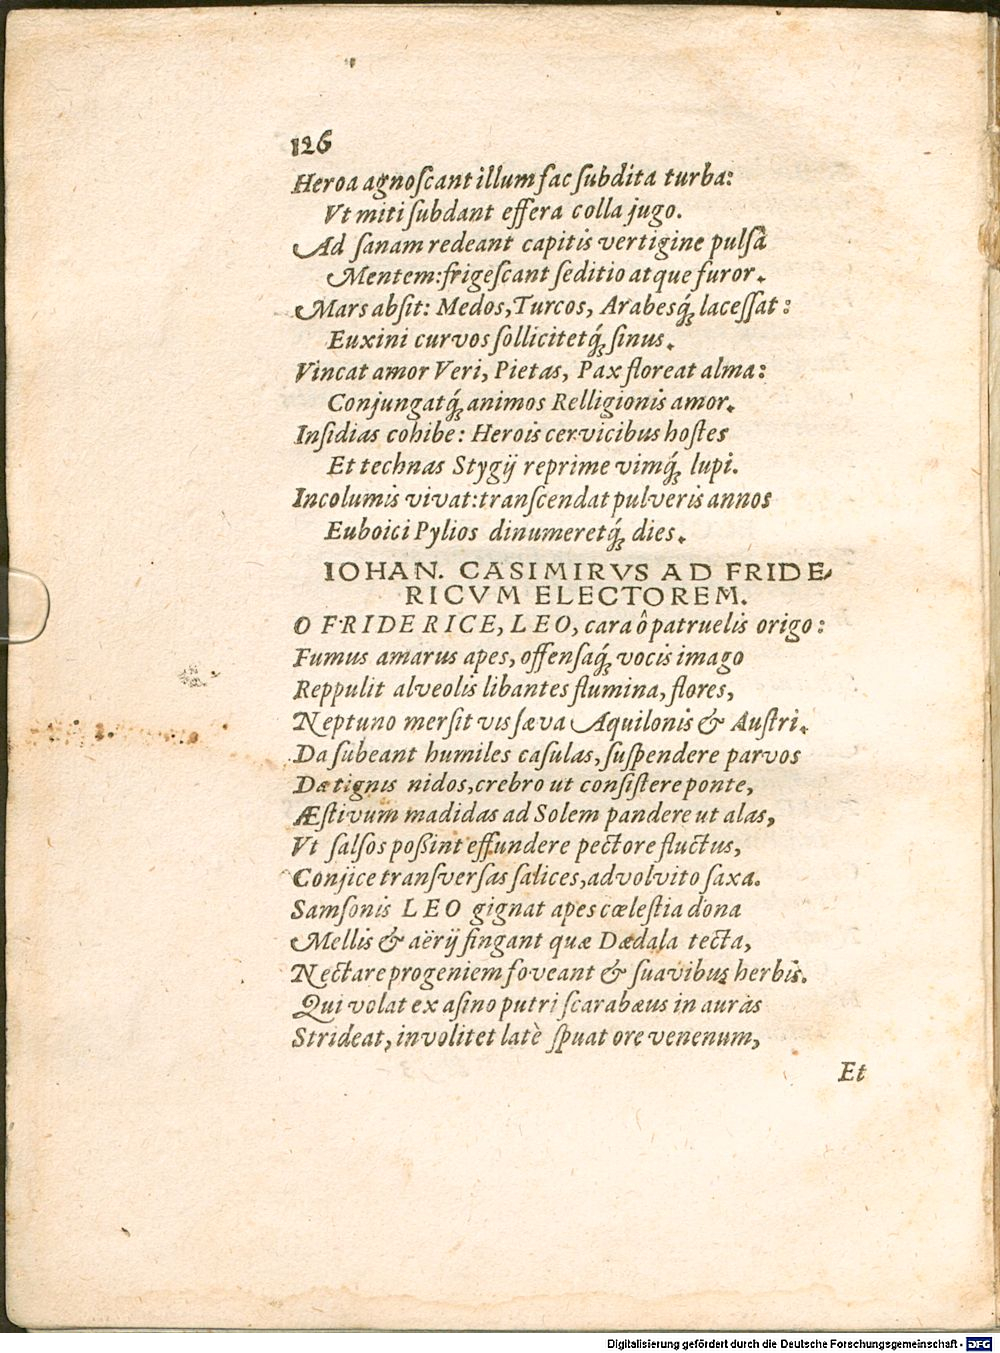 126
Heroa agnoſcant illum fac ſubdita turba:
Vt miti ſubdant effera colla jugo.
Ad ſanam redeant capitis vertigine pulsâ
Mentem: frigeſcant ſeditio atque furor.
Mars abſit: Medos, Turcos, Arabesq́; laceſſat:
Euxini curvos ſollicitetq́; ſinus.
Vincat amor Veri, Pietas, Pax floreat alma:
Conjungatq́; animos Relligionis amor.
Inſidias cohibe: Herois cervicibus hoſtes
Et technas Stygij reprime vimq́; lupi.
Incolumis vivat: tranſcendat pulveris annos
Euboici Pylios dinumeretq́; dies.
IOHAN. CASIMIRVS AD FRIDE-
RICVM ELECTOREM.
O FRIDERICE, LEO, cara ô patruelis origo:
Fumus amarus apes, offenſaq́; vocis imago
Reppulit alveolis libantes flumina, flores,
Neptuno merſit vis ſæva Aquilonis & Auſtri.
Da ſubeant humiles caſulas, ſuſpendere parvos
Da tignis nidos, crebro ut conſiſtere ponte,
Æſtivum madidas ad Solem pandere ut alas,
Vt ſalſos poßint effundere pectore fluctus,
Conjice tranſverſas ſalices, advolvito ſaxa.
Samſonis LEO gignat apes cœleſtia dona
Mellis & aërij fingant quæ Dædala tecta,
Nectare progeniem foveant & ſuavibus herbis.
Qui volat ex aſino putri ſcarabæus in auras
Strideat, involitet latè ſpuat ore venenum,
Et
Digitalisierung gefördert durch die Deutsche Forschungsgemeinschaft - DFG